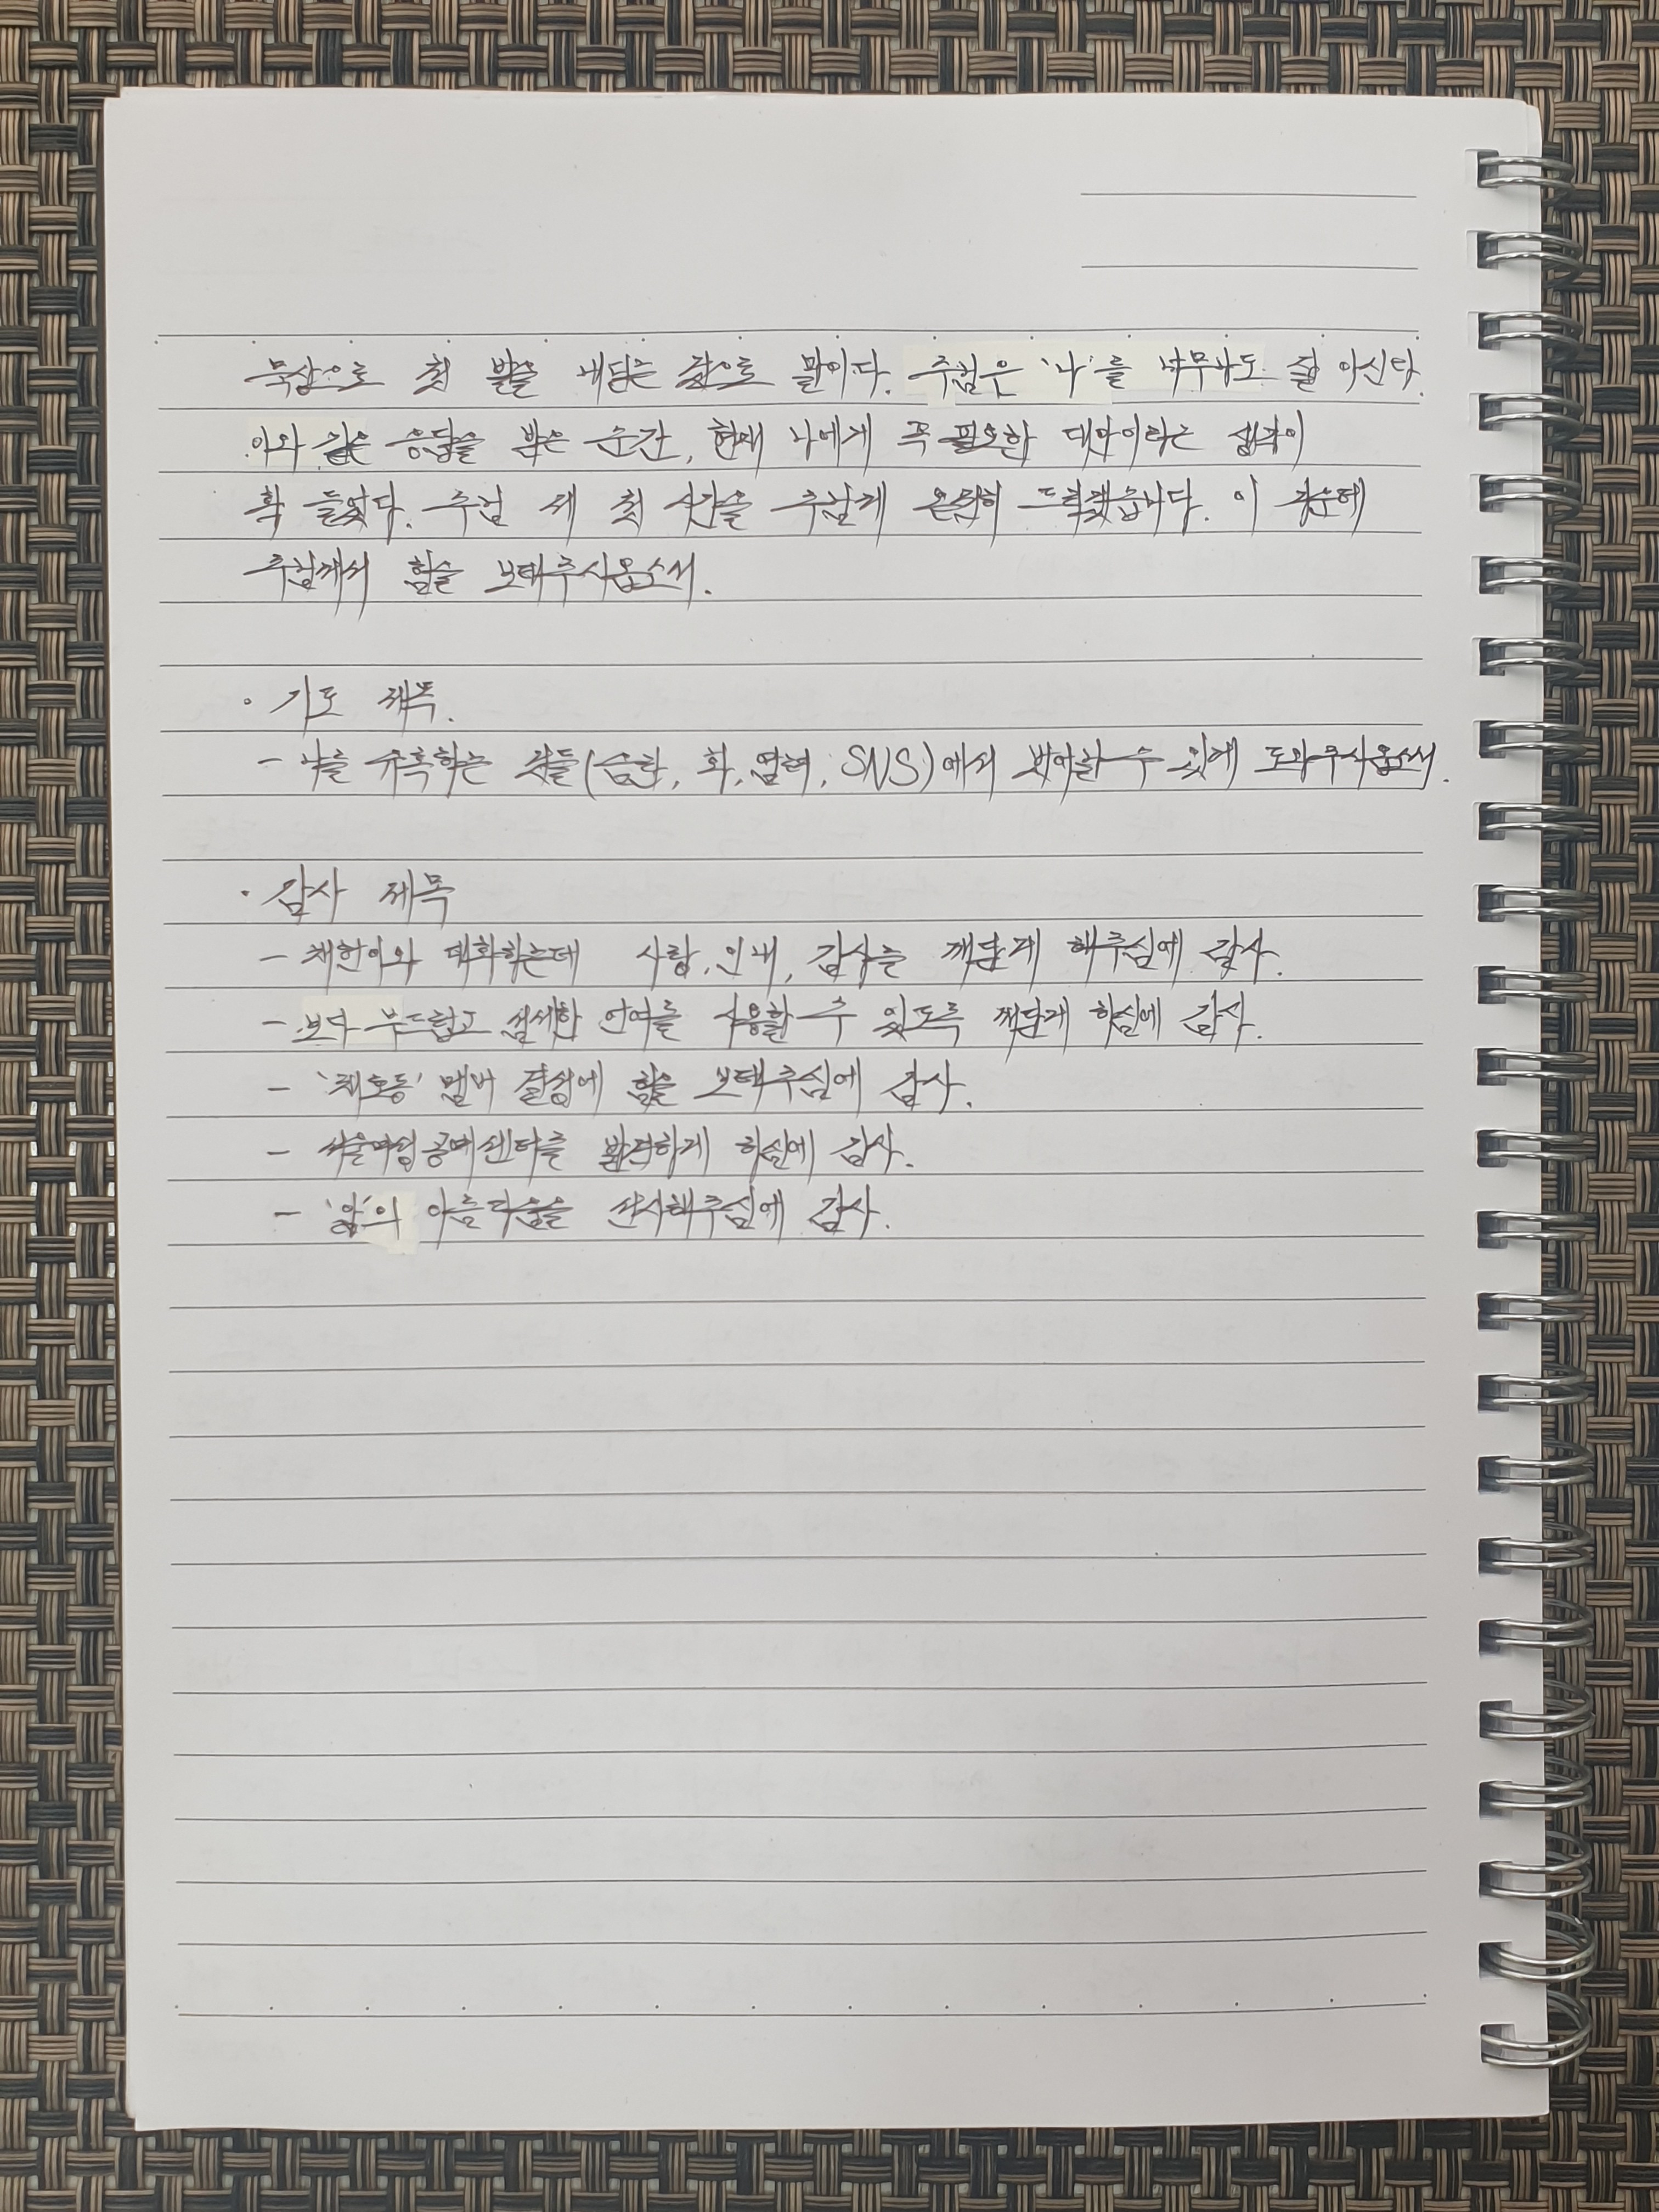 묵상으로 첫 발을 내딛는 값으로 말이다. 주님은 '나'를 너무나도 잘 아신다.
이와 같은 응답을 받은 순간, 현재 나에게 꼭 필요한 대안이라는 생각이
확 들었다. 주님 제 첫 시간을 주님께 온전히 드리겠습니다. 이
주님께서 힘을 보태주시옵소서.
· 기도 제목.
- 나를 유혹하는 것들(음란, 화, 염려, SNS)에서 벗어날 수 있게 도와주시옵소서.
· 감사 제목
- 채현이와 대화하는데 사랑, 인내, 감사를 깨닫게 해주심에 감사.
- 보다 부드럽고 섬세한 언어를 사용할 수 있도록 깨닫게 하심에 감사.
- 멤버 결성에 힘을 보태주심에 감사.
- 서울여성공예센터를 발견하게 하심에 감사.
- '앎'의 아름다움을 선사해주심에 감사.